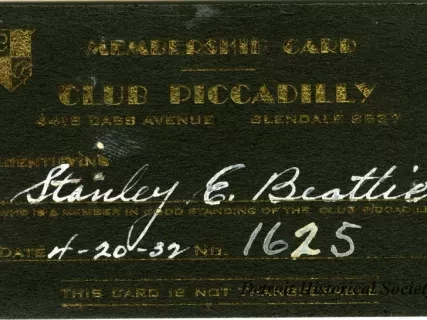 MEMBERSHIP CARD
CLUB PICCADILLY
4415 CASS AVENUE GLENDALE 9537
IDENTIFYING
Stanley E. Beattie
WHO IS A MEMBER IN GOOD STANDING OF THE CLUB PICCADILLY
DATE 4-20-32 NO. 1625
THIS CARD IS NOT TRANSFERABLE
Detroit Historical Society